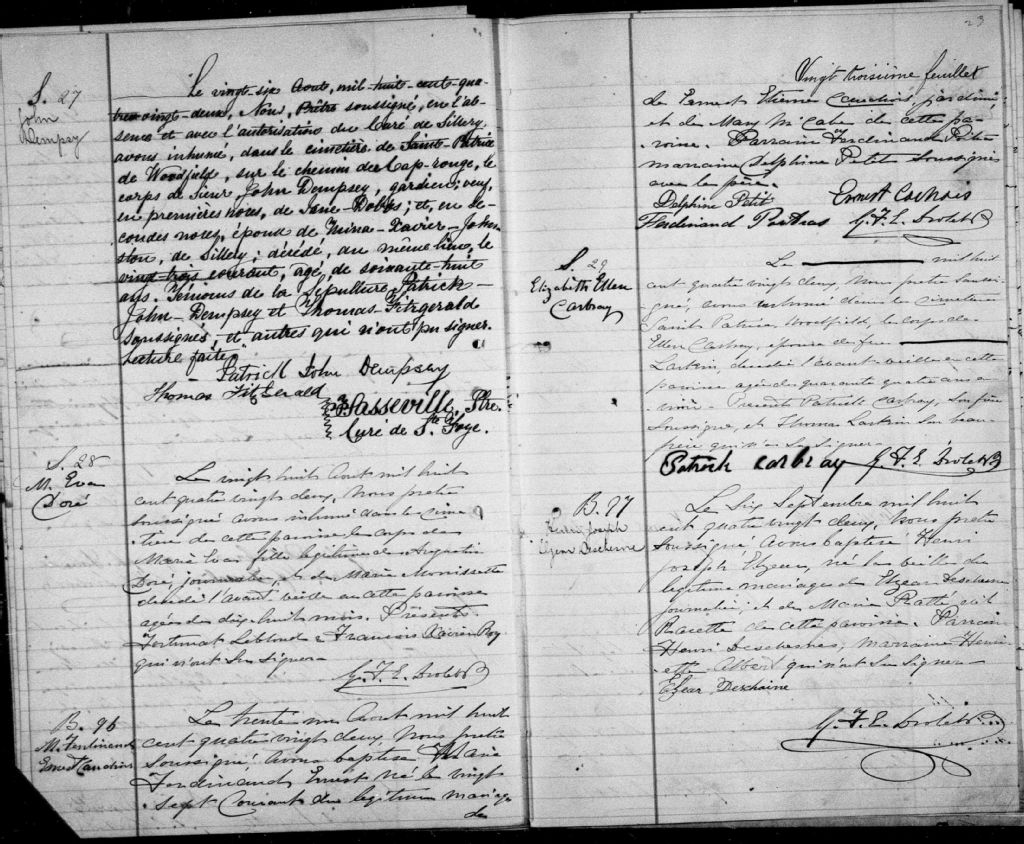 S. 27
John
Dempsey
Le vingt-six Aout, mil-huit-cent-qua-
tre-vingt-deux, Nous, Prêtre soussigné, en l'ab-
sence et avec l'autorisation du Curé de Sillery,
avons inhumé, dans le cimetière de Saint-Patrice
de Woodfield, sur le chemin du Cap-rouge, le
corps de Sieur John Dempsey, gardien; veuf,
en premières noces, de Jane-Dobbs; et, en se-
condes noces, époux de Mina-Xavier-Johns
ton, de Sillery; décédé, au même lieu, le
vingt-trois courant, agé, de soixante-huit
ans. Témoins de la Sépulture, Patrick-
John-Dempsey et Thomas Fitzgerald
Soussignés, et autres qui n'ont pu signer.
Lecture faite.
Patrick John Dempsey
Thomas FitzGerald
Sasseville, Ptre.
Curé de Ste Foye.
S. 28
M. Eva
Doré
Le vingt huit Aout mil huit
cent quatre vingt deux, Nous pretre
soussigné avons inhumé dans le cime
tière de cette paroisse le corps de
Marie Eva fille legitime de Augustin
Doré, journalier, et de Marie Morrissette
decedé l'avant veille en cette paroisse
agée de dix huit mois. Présents
Fortunat Leblond & Francois Xavier Roy
qui n'ont su signer
G. F. E. Drolet Ptr
B. 96
M. Ferdinand
Ernest Cauchois
Le trente un Aout mil huit
cent quatre vingt deux, Nous pretre
Soussigné, avons baptisé Marie
Ferdinand Ernest né le vingt
sept Courant du legitime mariage
de
23
Vingt troisième feuillet
de Ernest Etienne Cauchois, jardinier
et de Mary McCabe de cette pa-
roisse. Parrain Ferdinand Poitras
marraine Delphine Petit Soussignés
avec le père.
Delphine Petit Ernest Cauhois
Ferdinand Poitras G. F. E. Drolet Ptr
S. 29
Elizabeth Ellen
Carbray
Le mil huit
cent quatre vingt deux, Nous pretre Soussi-
gné, avons inhumé dans le cimetière
Saint Patrice, Woodfield, le corps de
Ellen Carbray, épouse de feu
Larkin, decedé l'avant veille en cette
paroisse agée de quarante quatre ans en-
viron. Presents Patrick Carbray, Son frère
Soussigné, et Thomas Larkin Son beau-
frère qui n'a Su Signer.
Patrick Carbray G. F. E. Drolet Ptr
B. 97
Henri Joseph
Elzear Dechene
Le Six Septembre mil huit
cent quatre vingt deux, Nous pretre
Soussigné avons baptisé Henri
Joseph Elzear, né la veille du
legitime mariage de Elzear Deschenes
journalier, et de Marie Ratté dit
Racette de cette paroisse. Parrain
Henri Deschesnes, marraine Henri
ette Albert qui n'ont Su Signer
Elzear Deschaine
G. F. E. Drolet Ptr